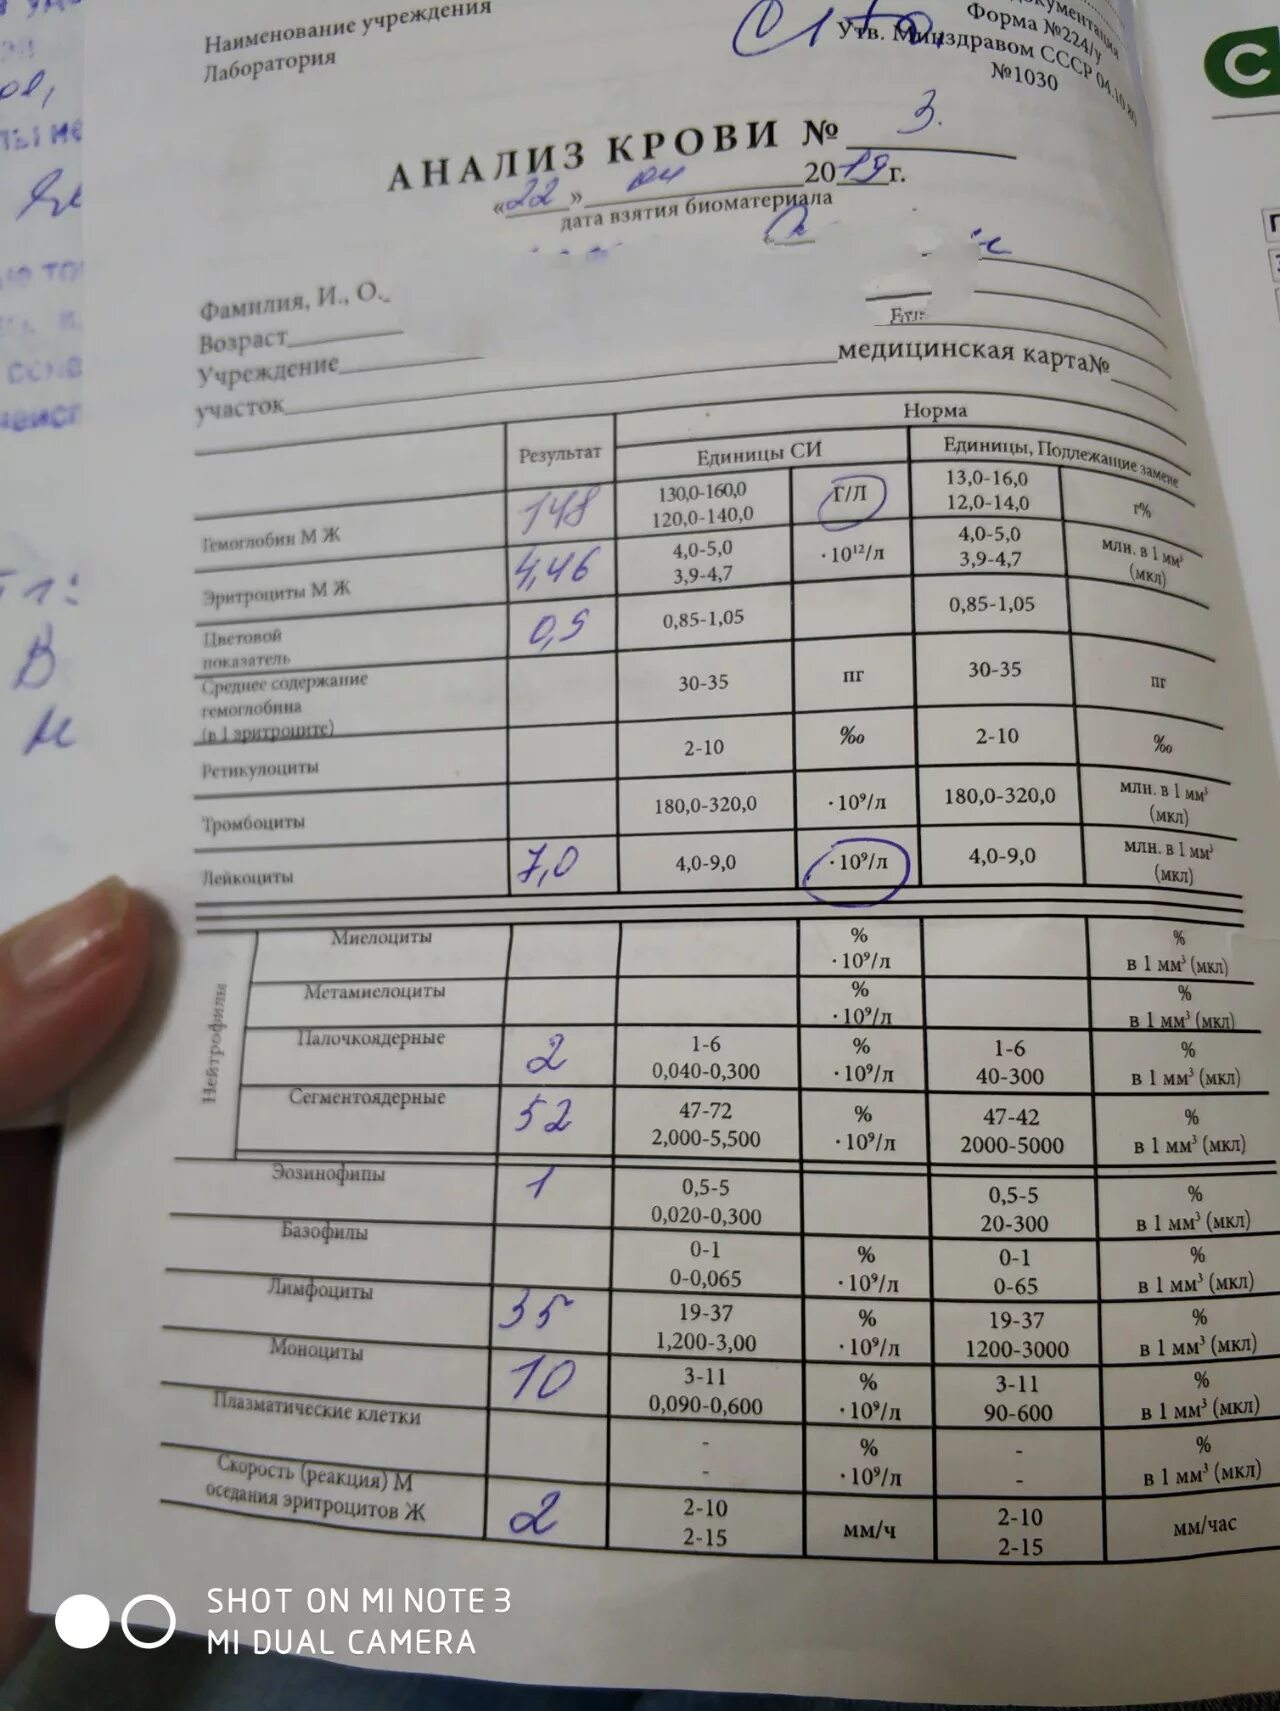 Наименование учреждения
Лаборатория
Форма №224/у
Утв. Минздравом СССР 04.10.80
№1030
C
АНАЛИЗ КРОВИ № 3.
«22» 2019г.
дата взятия биоматериала
Фамилия, И., О.
Возраст
Учреждение
медицинская карта№
участок
Результат Норма
Единицы СИ Единицы, Подлежащие замене
Гемоглобин М Ж 148 130,0-160,0 Г/Л 13,0-16,0 г%
120,0-140,0 12,0-14,0
Эритроциты М Ж 4,46 4,0-5,0 ·10¹²/л 4,0-5,0 млн. в 1 мм³
3,9-4,7 3,9-4,7 (мкл)
Цветовой 0,9 0,85-1,05 0,85-1,05
показатель
Среднее содержание 30-35 пг 30-35 пг
гемоглобина
(в 1 эритроците)
Ретикулоциты 2-10 ‰ 2-10 ‰
Тромбоциты 180,0-320,0 ·10⁹/л 180,0-320,0 млн. в 1 мм³
(мкл)
Лейкоциты 7,0 4,0-9,0 ·10⁹/л 4,0-9,0 млн. в 1 мм³
(мкл)
Нейтрофилы
Миелоциты % %
·10⁹/л в 1 мм³ (мкл)
Метамиелоциты % %
·10⁹/л в 1 мм³ (мкл)
Палочкоядерные 2 1-6 % 1-6 %
0,040-0,300 ·10⁹/л 40-300 в 1 мм³ (мкл)
Сегментоядерные 52 47-72 % 47-42 %
2,000-5,500 ·10⁹/л 2000-5000 в 1 мм³ (мкл)
Эозинофипы 1 0,5-5 0,5-5 %
0,020-0,300 20-300 в 1 мм³ (мкл)
Базофилы 0-1 % 0-1 %
0-0,065 ·10⁹/л 0-65 в 1 мм³ (мкл)
Лимфоциты 35 19-37 % 19-37 %
1,200-3,00 ·10⁹/л 1200-3000 в 1 мм³ (мкл)
Моноциты 10 3-11 % 3-11 %
0,090-0,600 ·10⁹/л 90-600 в 1 мм³ (мкл)
Плазматические клетки - % - %
- ·10⁹/л - в 1 мм³ (мкл)
Скорость (реакция) М 2 2-10 мм/ч 2-10 мм/час
оседания эритроцитов Ж 2-15 2-15
SHOT ON MI NOTE 3
MI DUAL CAMERA